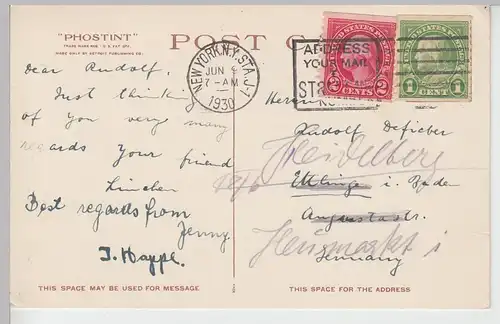 "PHOSTINT"
TRADE MARK REG. U.S. PAT. OFF.
MADE ONLY BY DETROIT PUBLISHING CO.
POST C
NEW YORK, N.Y. STA. J-1
JUN
7-AM
1930
ADDRESS
YOUR MAIL
UNITED STATES POSTAGE
2 CENTS 2
UNITED STATES POSTAGE
1 CENT 1
Dear Rudolf.
Just thinking
of you very many
regards your friend
Linchen
Best regards from
Jenny.
J. Happe.
Herrn
Rudolf
Heidelberg
i. Baden
Augustastr.
Heumarkt 1
Germany
THIS SPACE MAY BE USED FOR MESSAGE
THIS SPACE IS FOR THE ADDRESS